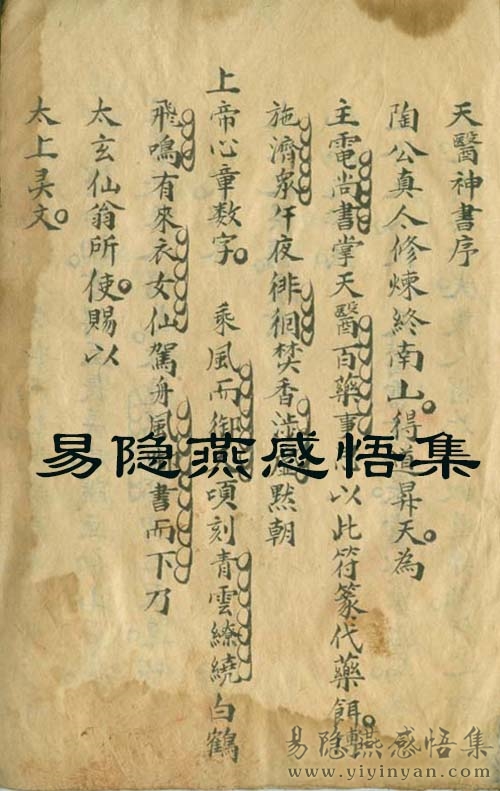 天醫神書序
陶公真人修煉終南山。得道昇天。為
主電尚書掌天醫百藥事以此符篆代藥餌。
施濟衆午夜徘徊焚香涉虛黙朝
上帝心章数字。 乘風而御頃刻青雲繚繞白鶴
飛鳴有來衣女仙駕舟風書而下乃
太玄仙翁所使。賜以
太上灵文。
易隐燕感悟集
易隐燕感悟集
www.yiyinyan.com